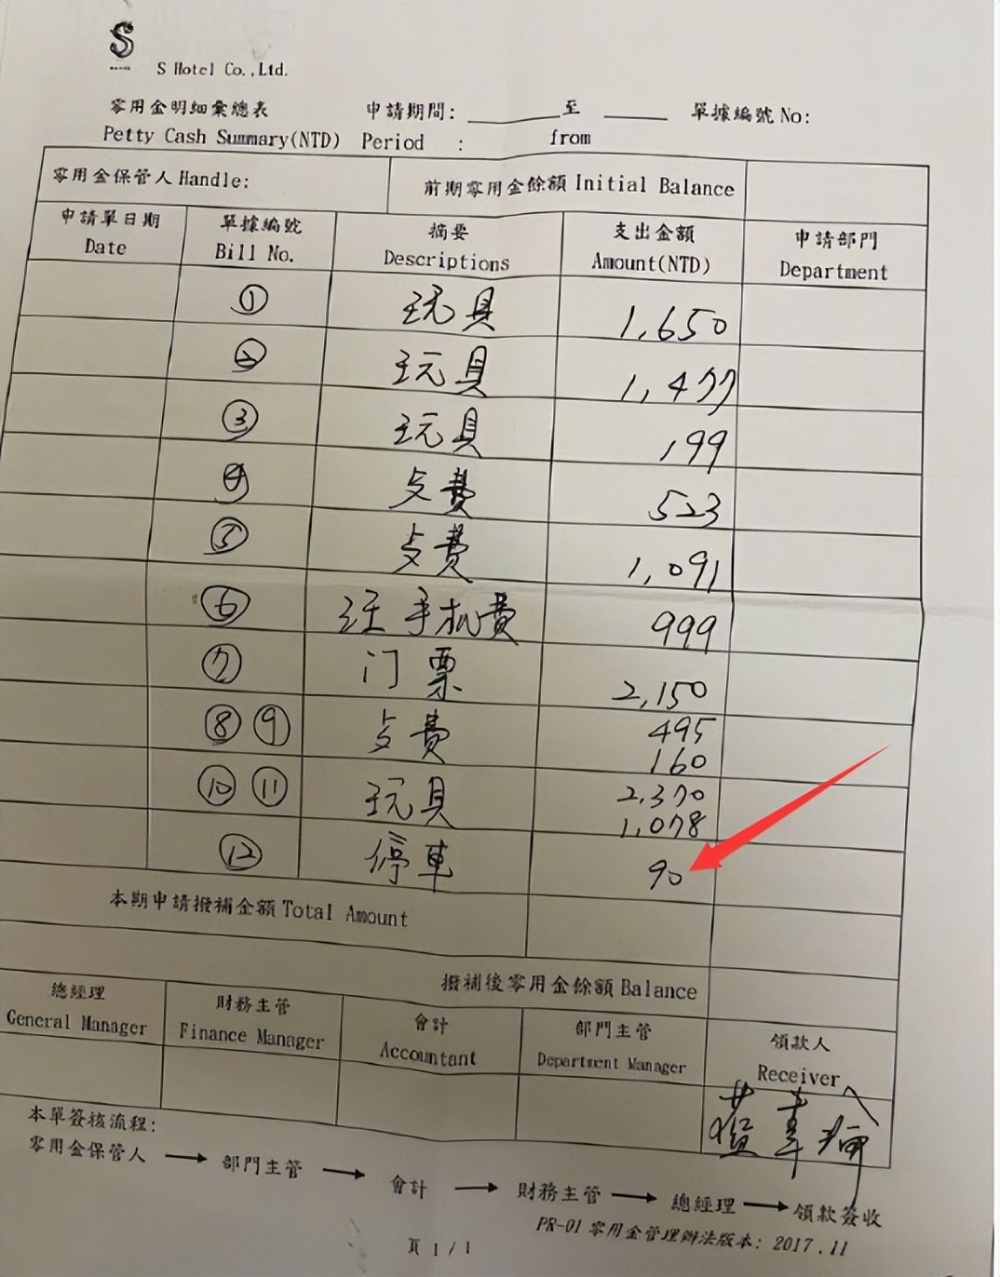 S
S Hotel Co.,Ltd.
零用金明細彙總表 申請期間: 至 單據編號 No:
Petty Cash Summary(NTD) Period : from
零用金保管人 Handle: 前期零用金餘額 Initial Balance
申請單日期 單據編號 摘要 支出金額 申請部門
Date Bill No. Descriptions Amount(NTD) Department
① 玩具 1,650
② 玩具 1,477
③ 玩具 199
④ 费 523
⑤ 费 1,091
⑥ 汪 手机费 999
⑦ 门票 2,150
⑧ ⑨ 费 495
160
⑩ ⑪ 玩具 2,370
1,078
⑫ 停車 90
本期申請撥補金額 Total Amount
撥補後零用金餘額 Balance
總經理 財務主管 會計 部門主管 領款人
General Manager Finance Manager Accountant Department Manager Receiver
本單簽核流程:
零用金保管人 → 部門主管 → 會計 → 財務主管 → 總經理 → 領款簽收
PR-01 零用金管理辦法版本: 2017.11
頁 1 / 1